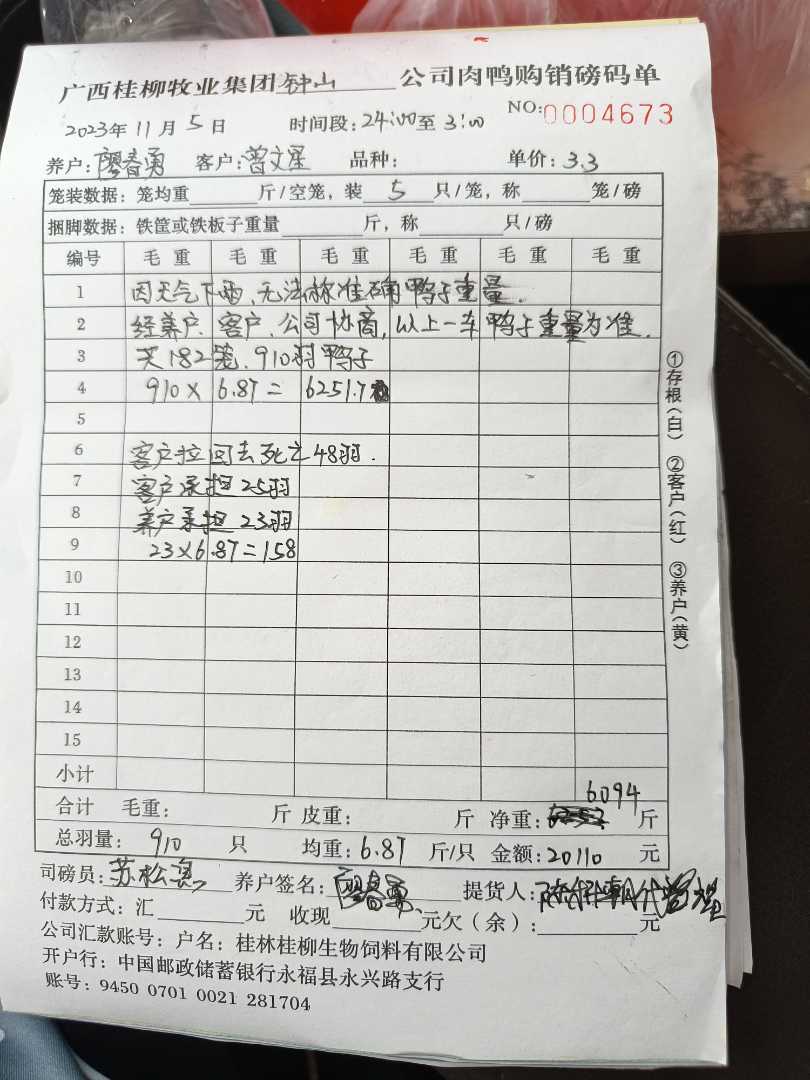 广西桂柳牧业集团钟山公司肉鸭购销磅码单
2023年 11月 5日 时间段:24:00至 3:00 NO:0004673
养户:廖春勇 客户:曾文星 品种: 单价:3.3
笼装数据:笼均重 斤/空笼,装 5 只/笼,称 笼/磅
捆脚数据:铁筐或铁板子重量 斤,称 只/磅
编号 毛 重 毛 重 毛 重 毛 重 毛 重 毛 重
1 因天气下雨,无法称准确鸭子重量.
2 经养户、客户、公司协商,以上一车鸭子重量为准.
3 共182笼.910羽鸭子
4 910× 6.87= 6251.7
5
6 客户拉回去死亡48羽.
7 客户承担25羽
8 养户承担23羽
9 23×6.87=158
10
11
12
13
14
15
小计
6094
合计 毛重: 斤 皮重: 斤 净重: 斤
总羽量: 910 只 均重:6.87 斤/只 金额:20110 元
司磅员:苏松 养户签名:廖春勇 提货人:
付款方式:汇 元 收现 元欠(余): 元
公司汇款账号:户名:桂林桂柳生物饲料有限公司
开户行:中国邮政储蓄银行永福县永兴路支行
账号:9450 0701 0021 281704
①存根(白) ②客户(红) ③养户(黄)